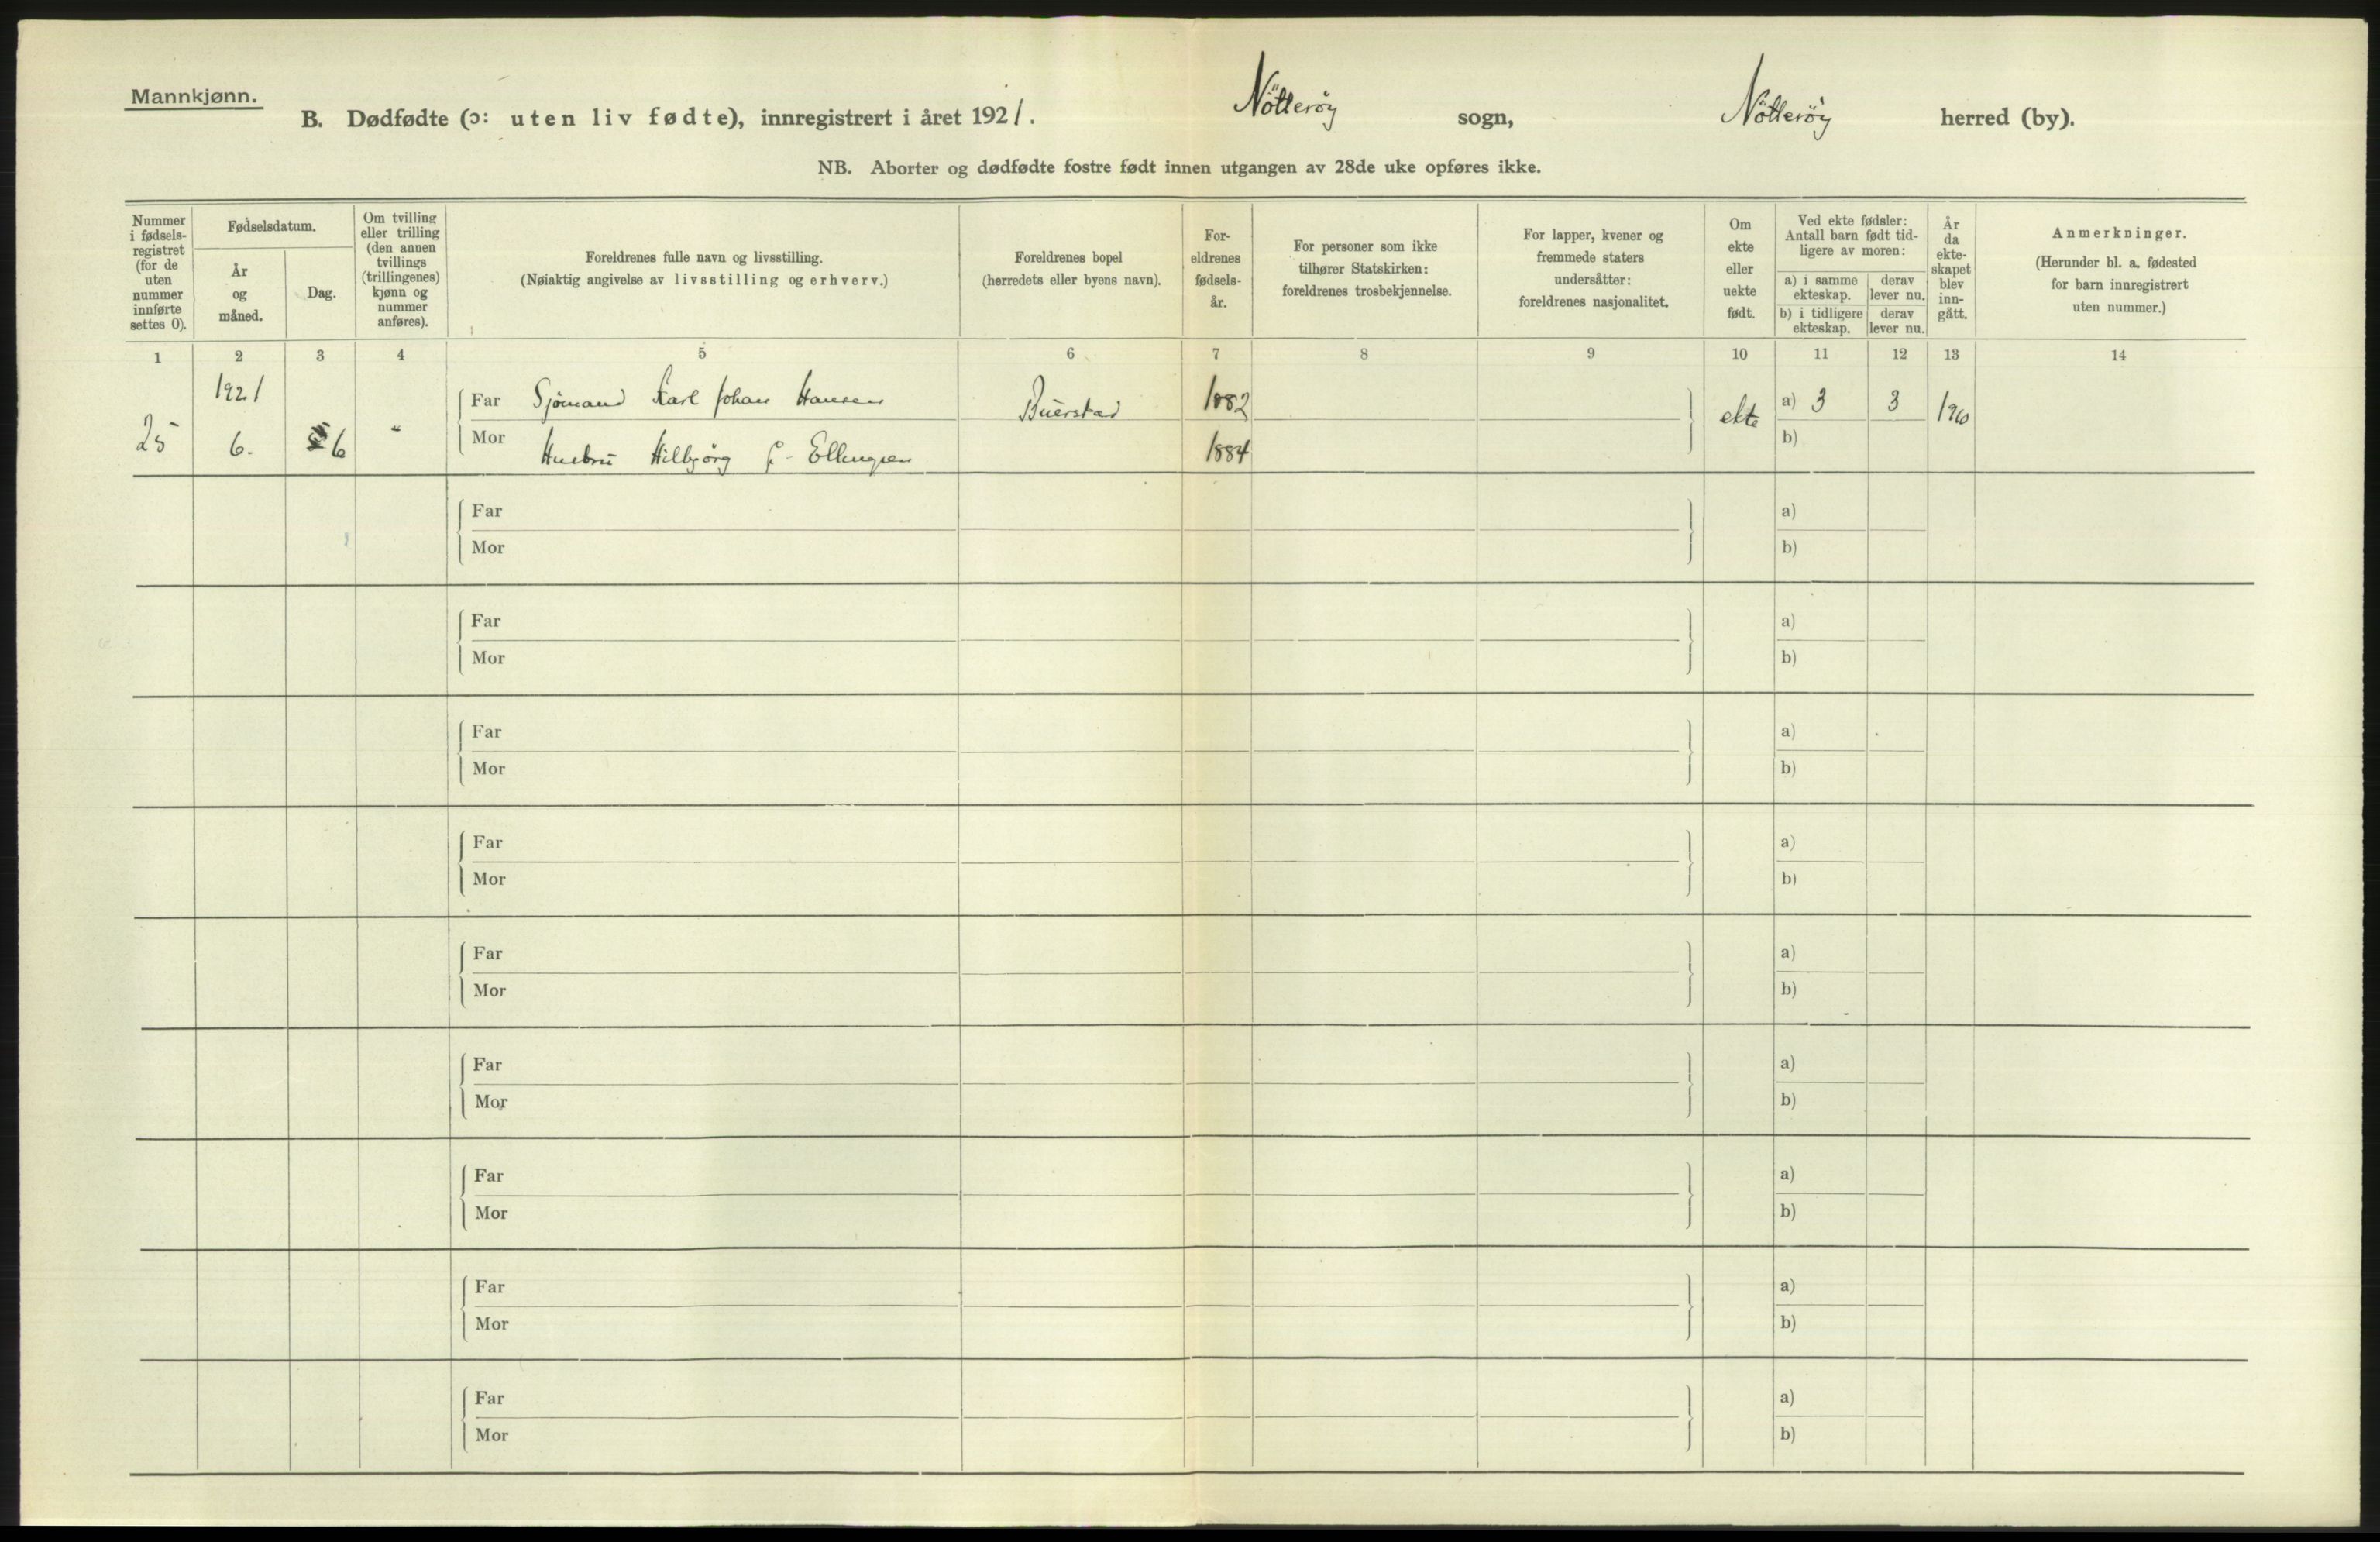 Mannkjønn.
B. Dødfødte (ɔ: uten liv fødte), innregistrert i året 1921. Nötteröy sogn, Nötteröy herred (by).
NB. Aborter og dødfødte fostre født innen utgangen av 28de uke opføres ikke.
Nummer i fødsels-registret (for de uten nummer innførte settes 0).
Fødselsdatum.
År og måned.
Dag.
Om tvilling eller trilling (den annen tvillings (trillingenes) kjønn og nummer anføres).
Foreldrenes fulle navn og livsstilling.
(Nøiaktig angivelse av livsstilling og erhverv.)
Foreldrenes bopel
(herredets eller byens navn).
For-eldrenes fødsels-år.
For personer som ikke tilhører Statskirken: foreldrenes trosbekjennelse.
For lapper, kvener og fremmede staters undersåtter: foreldrenes nasjonalitet.
Om ekte eller uekte født.
Ved ekte fødsler: Antall barn født tid-ligere av moren:
a) i samme ekteskap.
derav lever nu.
b) i tidligere ekteskap.
derav lever nu.
År da ekte-skapet blev inn-gått.
Anmerkninger.
(Herunder bl. a. fødested for barn innregistrert uten nummer.)
1 2 3 4 5 6 7 8 9 10 11 12 13 14
1921
Far Sjömand Karl Johan Hansen Buerstad 1882 ekte a) 3 3
25 6. 6 "
Mor Hustru Hilbjörg f. Ellingsen 1884 b)
Far a)
Mor b)
Far a)
Mor b)
Far a)
Mor b)
Far a)
Mor b)
Far a)
Mor b)
Far a)
Mor b)
Far a)
Mor b)
Far a)
Mor b)
Far a)
Mor b)